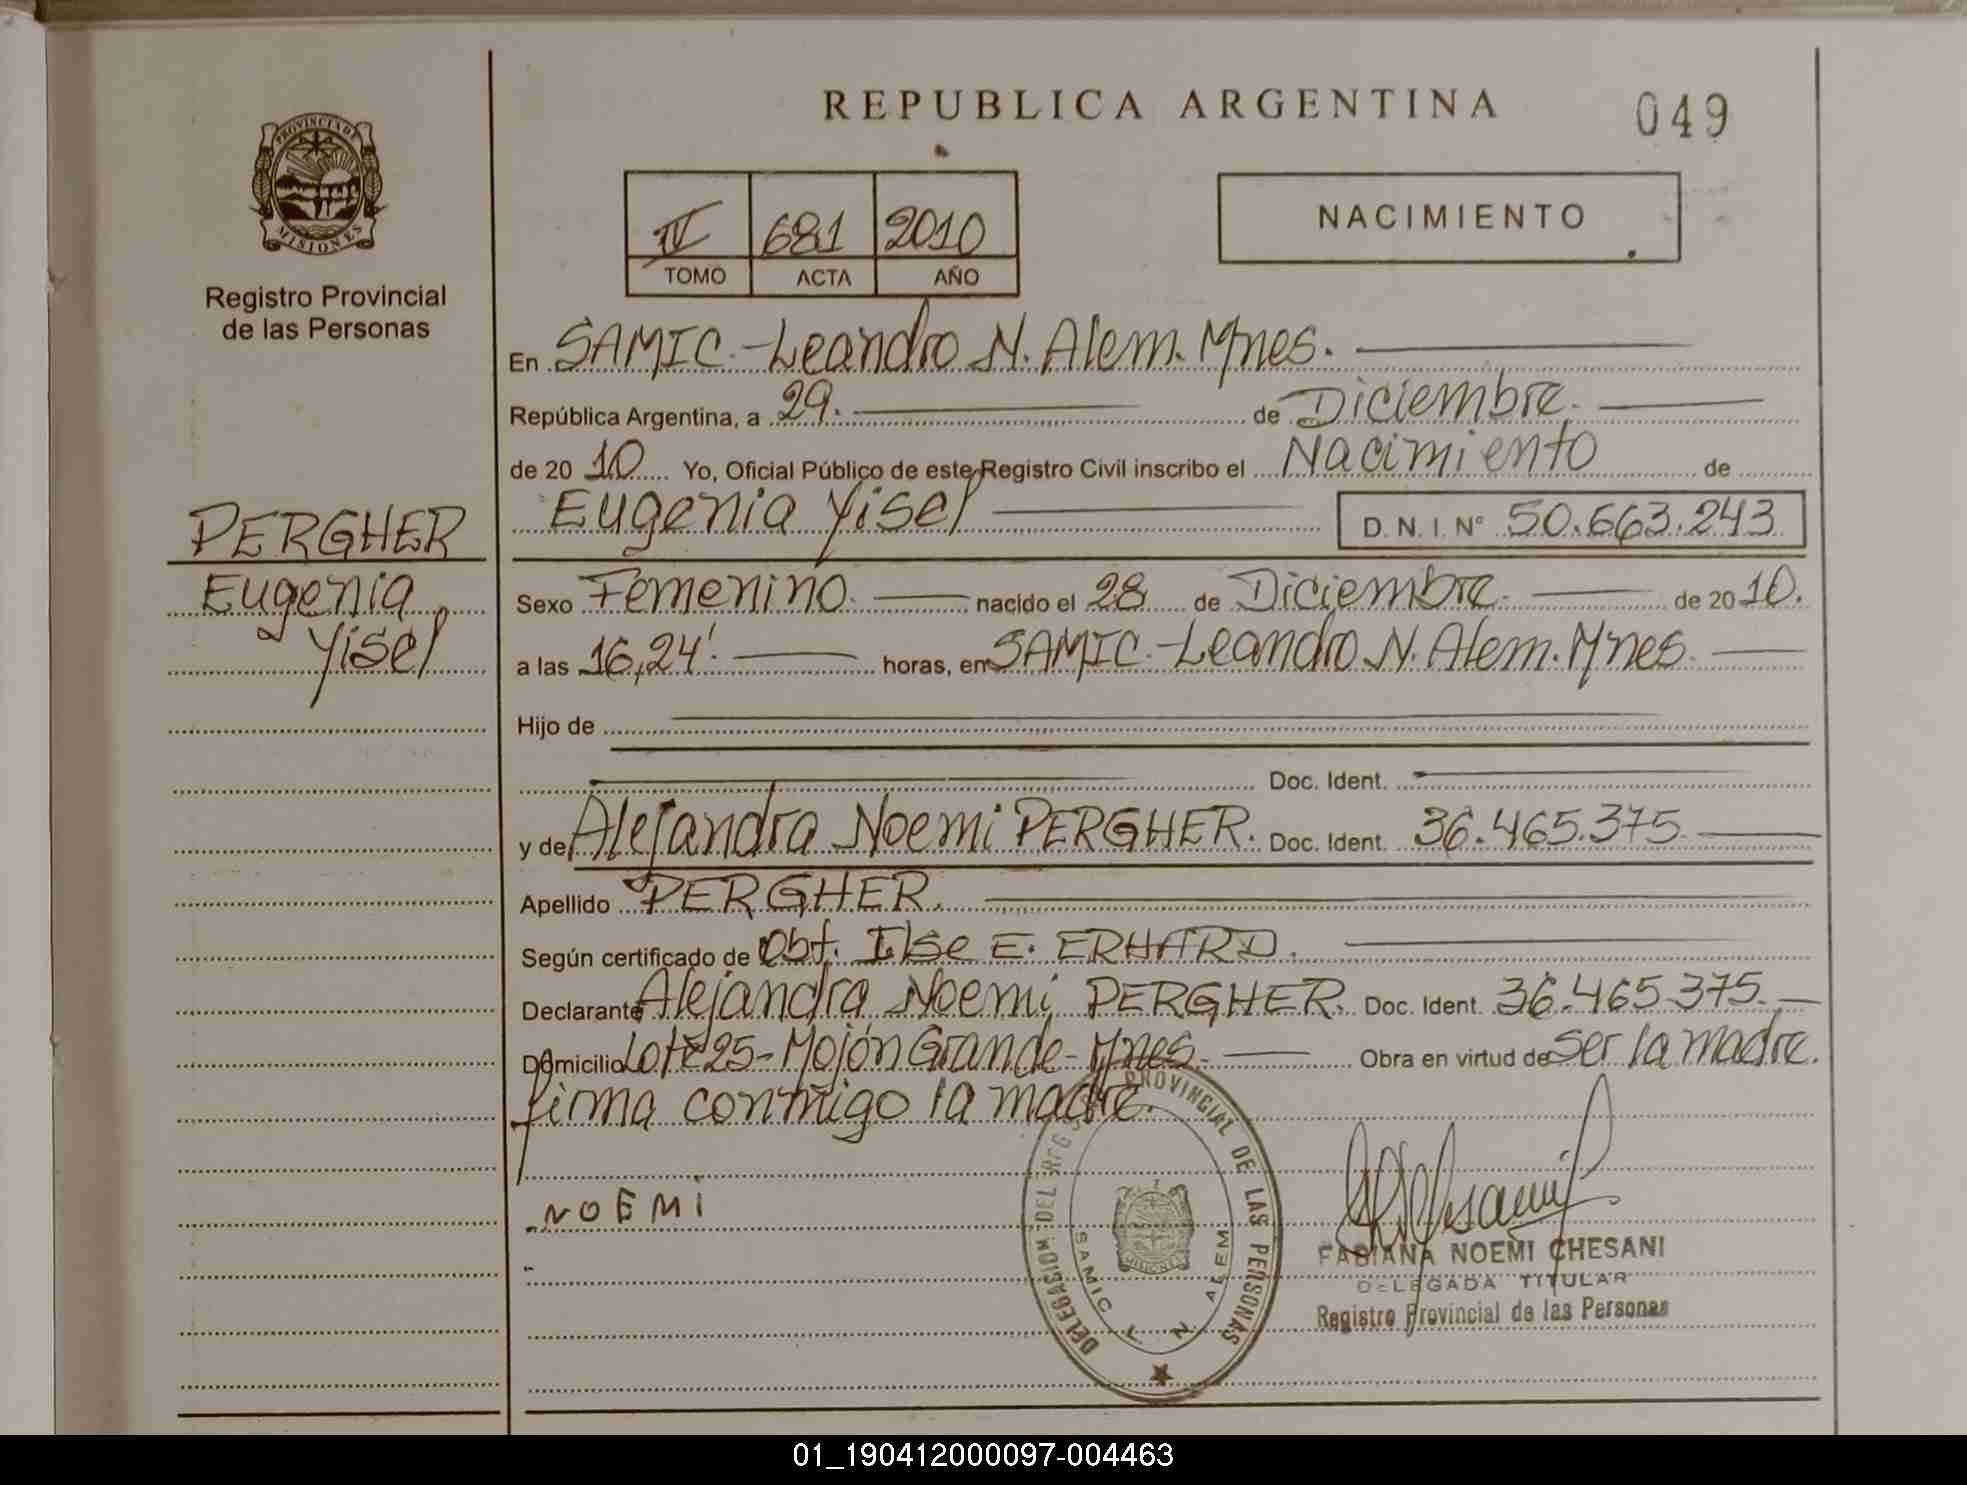 REPUBLICA ARGENTINA
049
PROVINCIA DE
MISIONES
Registro Provincial
de las Personas
IV 681 2010
TOMO ACTA AÑO
NACIMIENTO
En SAMIC.-Leandro N. Alem. Mnes.
República Argentina, a 29. de Diciembre.
de 20 10 Yo, Oficial Público de este Registro Civil inscribo el Nacimiento de
Eugenia Yisel D. N. I. N° 50.663.243
PERGHER
Eugenia
Yisel
Sexo Femenino. nacido el 28 de Diciembre. de 20 10.
a las 16,24' horas, en SAMIC.-Leandro N. Alem. Mnes.
Hijo de
Doc. Ident.
y de Alejandra Noemi PERGHER. Doc. Ident. 36.465.375.
Apellido PERGHER.
Según certificado de Obt. Ilse E. ERHARD.
Declarante Alejandra Noemi PERGHER. Doc. Ident. 36.465.375.
Domicilio Lote 25-Mojón Grande-Mnes. Obra en virtud de Ser la madre.
firma conmigo la madre.
NOEMi
DELEGACION DEL REG PROVINCIAL DE LAS PERSONAS
SAMIC L N ALEM
MISIONES
FABIANA NOEMI CHESANI
DELEGADA TITULAR
Registro Provincial de las Personas
01_190412000097-004463